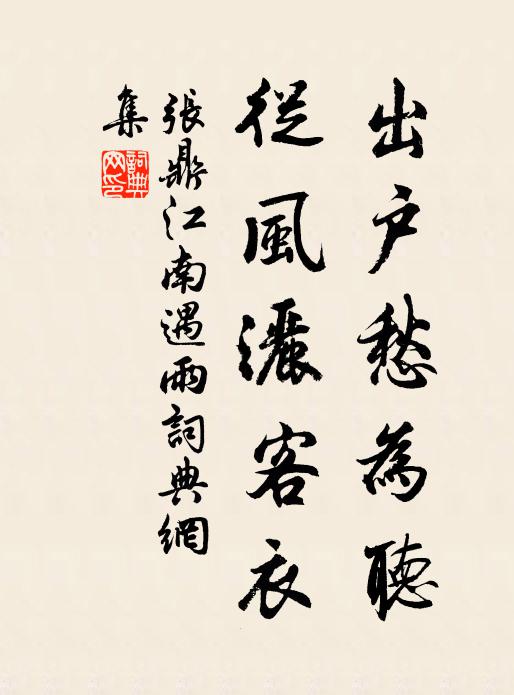 出戶愁為聽
從風灑客衣
張鼎江南遇雨詞典網
集
詞典
网印